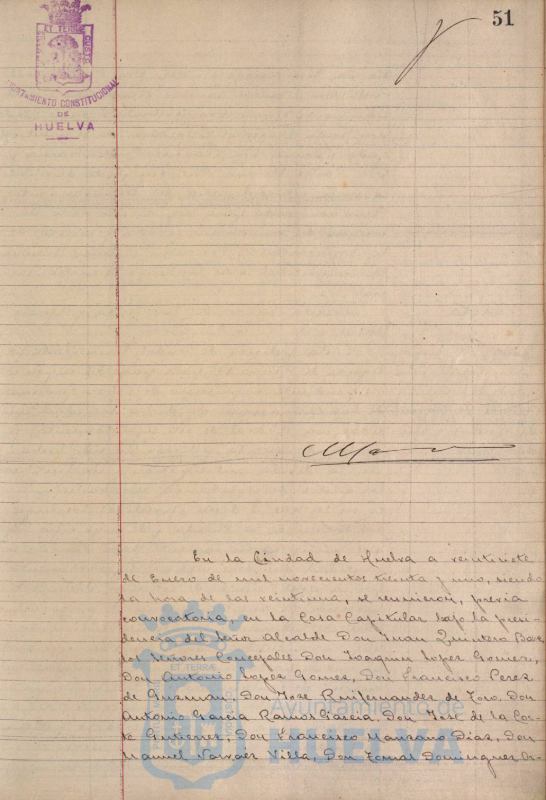 51
ET TERRÆ
CUSTO
AYUNTAMIENTO CONSTITUCIONAL
DE
HUELVA
En la Ciudad de Huelva a veintisiete
de Enero de mil novecientos treinta y uno, siendo
la hora de las veintiuna, se reunieron, previa
convocatoria, en la Casa Capitular bajo la presi-
dencia del Señor Alcalde Don Juan Quintero Baez
los Señores Concejales Don Joaquin Lopez Gomez,
Don Antonio Lopez Gomez, Don Francisco Perez
de Guzman, Don Jose Ruifernandez de Toro, Don
Antonio Garcia Ramos Garcia, Don Jose de la Cor-
te Gutierrez, Don Francisco Manzano Diaz, Don
Manuel Narvaez Villa, Don Tomas Dominguez Or-
ET TERRÆ
Ayuntamiento de
HUELVA